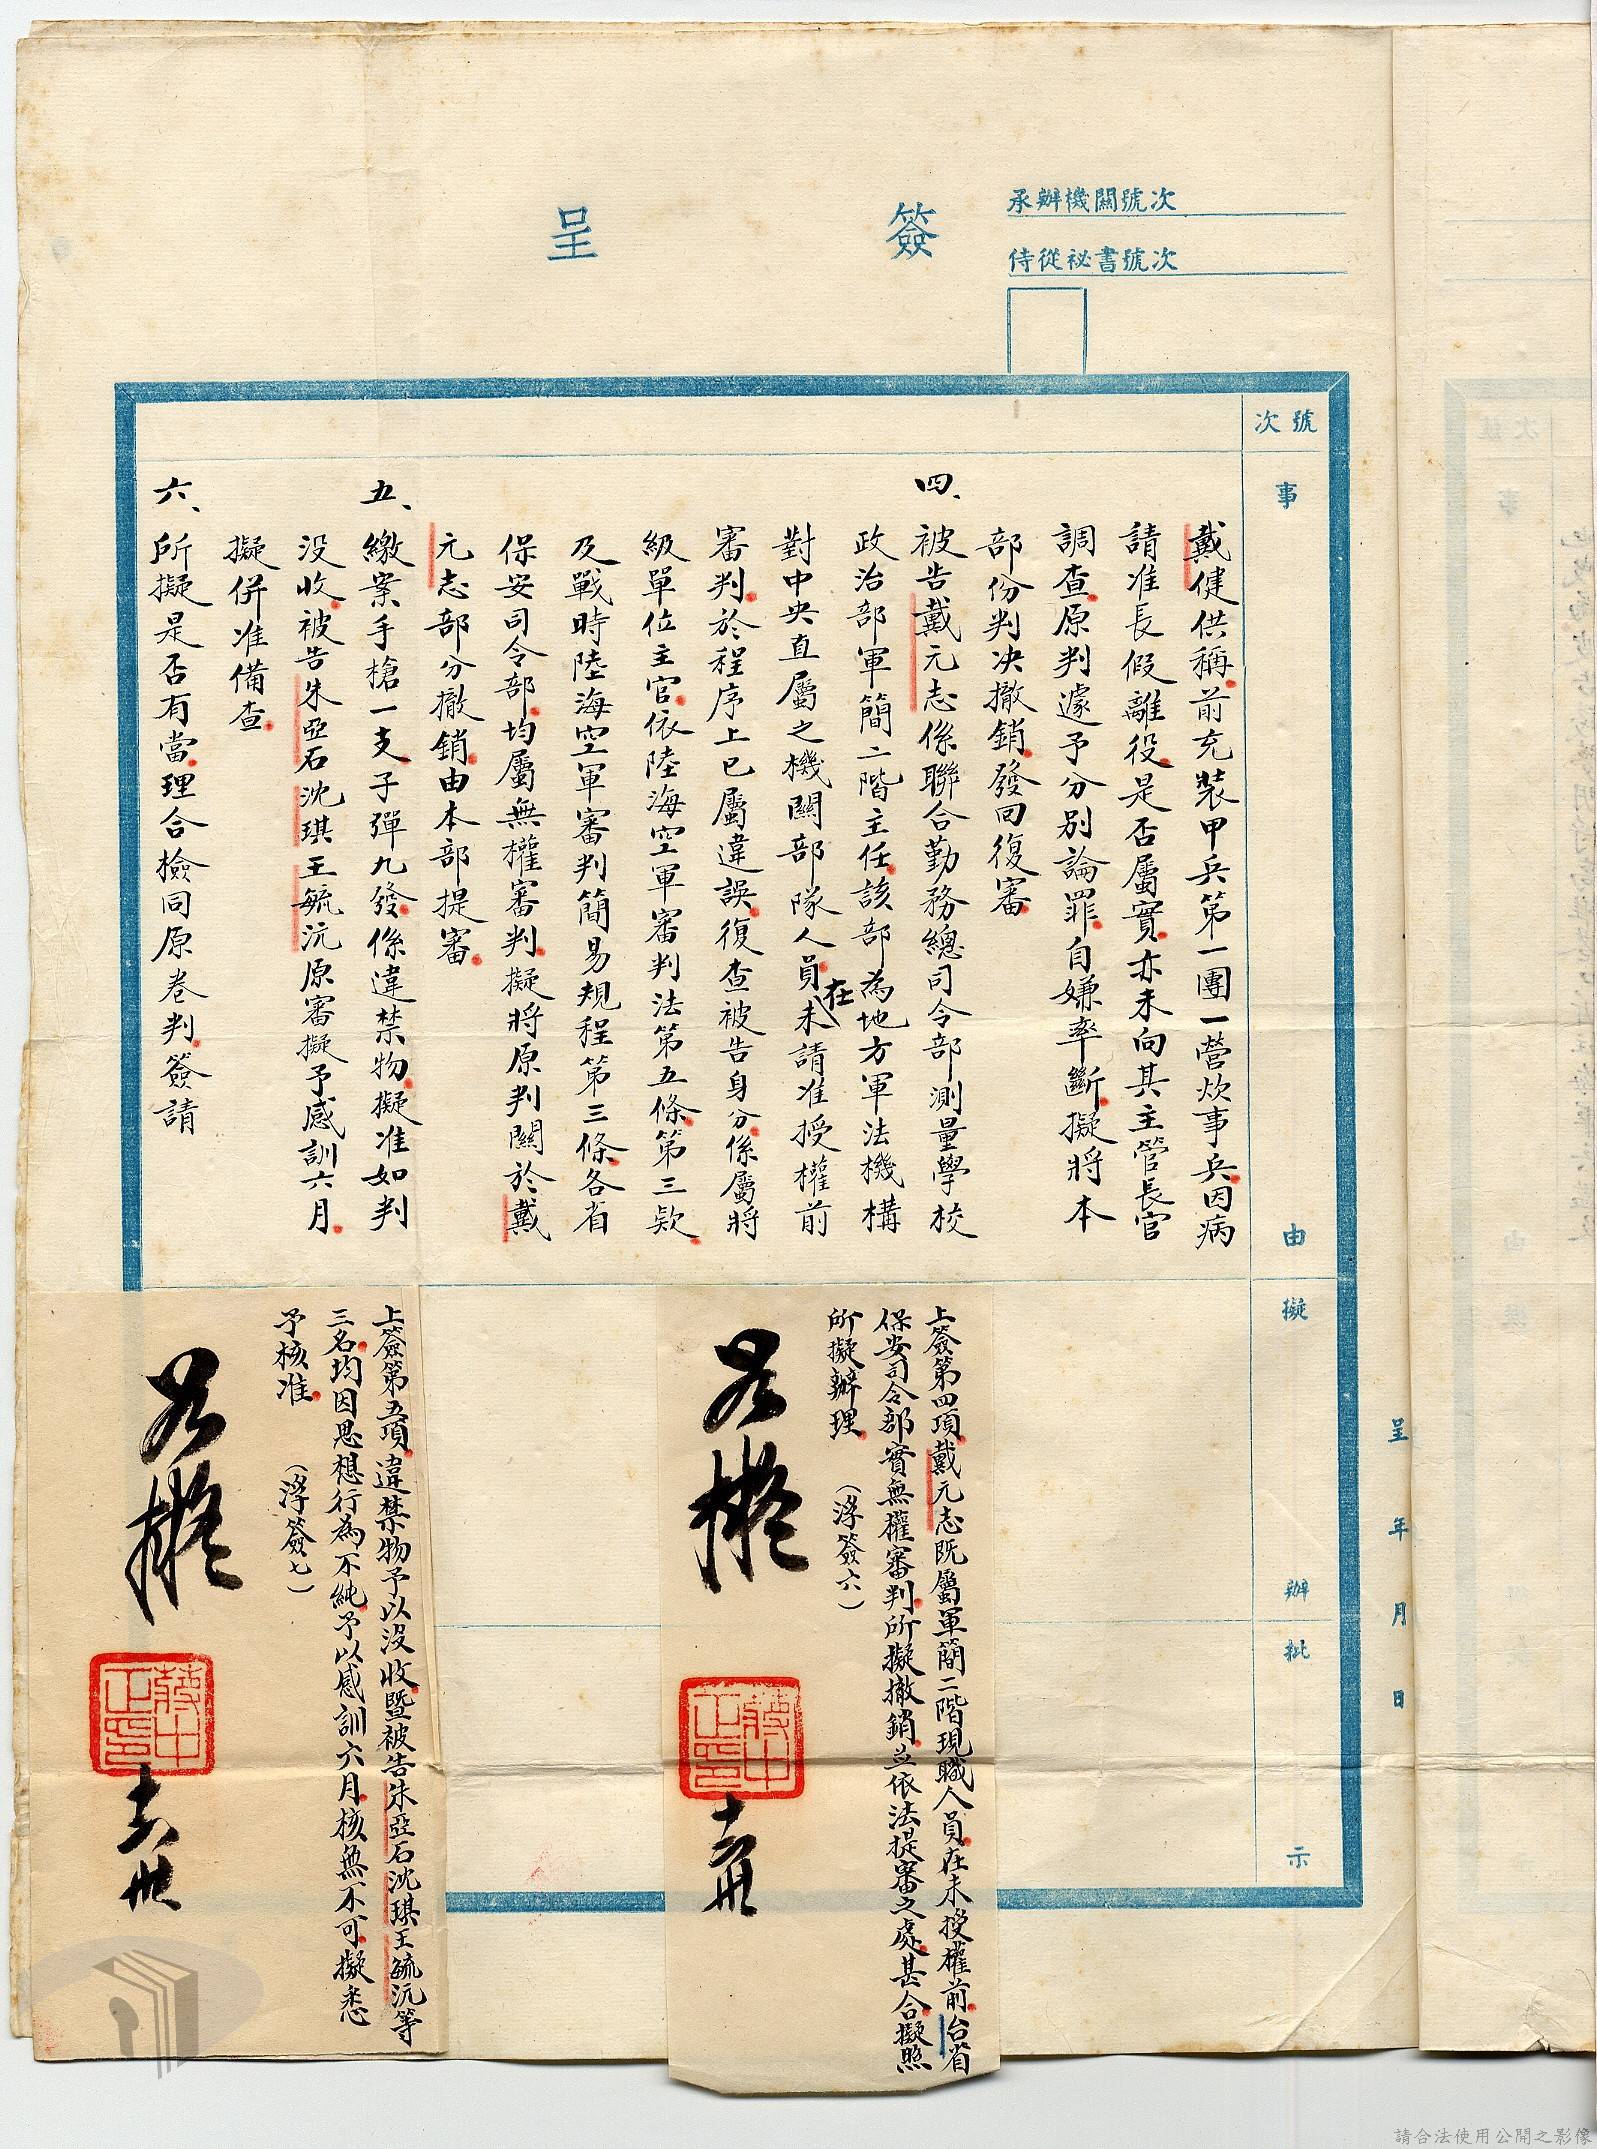 簽呈
承辦機關號次
侍從祕書號次
號次
事由
擬辦
批示
呈 年 月 日
戴健供稱前充裝甲兵第一團一營炊事兵因病
請准長假離役是否屬實亦未向其主管長官
調查原判遽予分別論罪自嫌率斷擬將本
部份判决撤銷發回復審
四、被告戴元志係聯合勤務總司令部測量學校
政治部軍簡二階主任該部為地方軍法機構
對中央直屬之機關部隊人員在未請准授權前
審判於程序上已屬違誤復查被告身分係屬將
級單位主官依陸海空軍審判法第五條第三欵
及戰時陸海空軍審判簡易規程第三條各省
保安司令部均屬無權審判擬將原判關於戴
元志部分撤銷由本部提審
五、繳案手槍一支子彈九發係違禁物擬准如判
没收被告朱亞石沈琪王毓沅原審擬予感訓六月
擬併准備查
六、所擬是否有當理合檢同原卷判簽請
上簽第四項戴元志既屬軍簡二階現職人員在未授權前台省
保安司令部實無權審判所擬撤銷並依法提審之處甚合擬照
所擬辦理 (浮簽六)
如擬
蔣中正印
上簽第五項違禁物予以没收暨被告朱亞石沈琪王毓沅等
三名均因思想行為不純予以感訓六月核無不可擬悉
予核准 (浮簽七)
如擬
蔣中正印
請合法使用公開之影像